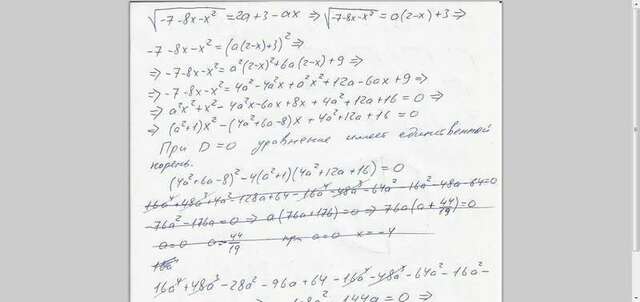 √(-7-8x-x²) = 2a+3-ax ⇒ √(-7-8x-x²) = a(2-x)+3 ⇒
-7-8x-x² = (a(2-x)+3)² ⇒
⇒ -7-8x-x² = a²(2-x)²+6a(2-x)+9 ⇒
⇒ -7-8x-x² = 4a²-4a²x+a²x²+12a-6ax+9 ⇒
⇒ a²x²+x²-4a²x-6ax+8x+4a²+12a+16=0 ⇒
⇒ (a²+1)x²-(4a²+6a-8)x+4a²+12a+16=0
При D=0 уравнение имеет единственный
корень.
(4a²+6a-8)²-4(a²+1)(4a²+12a+16)=0
16a⁴+48a³+4a²-128a+64-16a⁴-48a³-64a²-16a²-48a-64=0
-76a²-176a=0 ⇒ a(76a+176)=0 ⇒ 76a(a+44/19)=0
a=0 a=-44/19 при a=0 x=-4
16a⁴+48a³-28a²-96a+64-16a⁴-48a³-64a²-16a²-
144a=0 ⇒